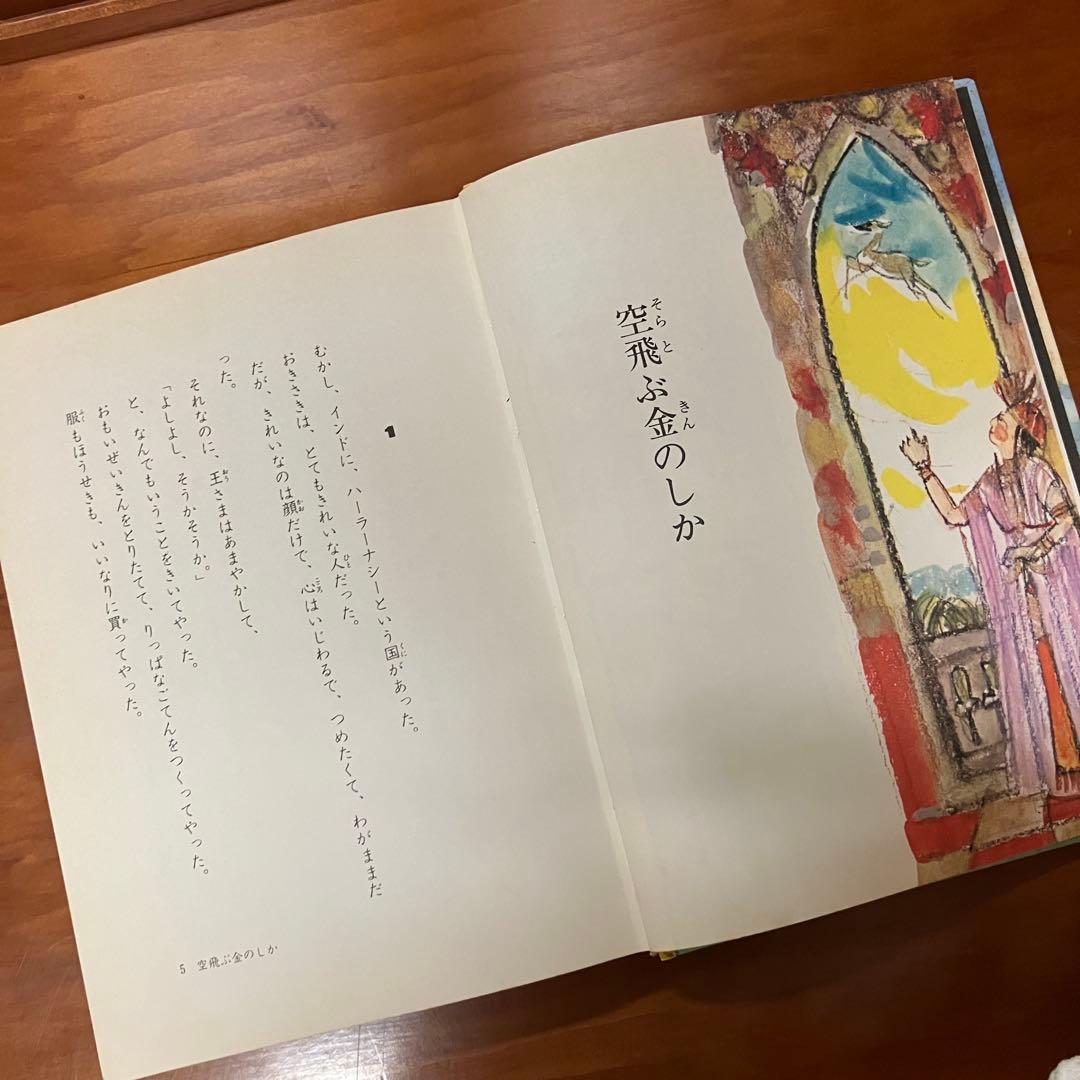 空飛ぶ金のしか
1
むかし、インドに、ハーラーナシーという国があった。
おきさきは、とてもきれいな人だった。
だが、きれいなのは顔だけで、心はいじわるで、つめたくて、わがままだ
った。
それなのに、王さまはあまやかして、
「よしよし、そうかそうか。」
と、なんでもいうことをきいてやった。
おもいぜいきんをとりたてて、りっぱなごてんをつくってやった。
服もほうせきも、いいなりに買ってやった。
5 空飛ぶ金のしか